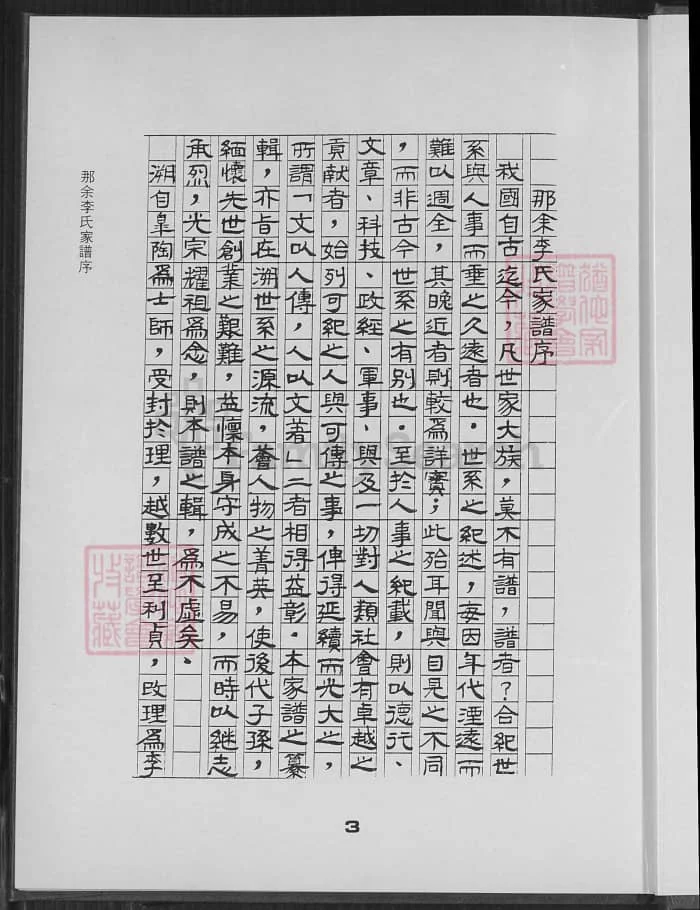 那余李氏家譜序
我國自古迄今，凡世家大族，莫不有譜，譜者？合紀世
系與人事而垂之久遠者也。世系之紀述，每因年代湮遠而
難以週全，其晚近者則較為詳實；此殆耳聞與目見之不同
，而非古今世系之有別也。至於人事之紀載，則以德行、
文章、科技、政經、軍事、與及一切對人類社會有卓越之
貢献者，始列可紀之人與可傳之事，俾得延續而光大之，
所謂「文以人傳，人以文著」二者相得益彰。本家譜之纂
輯，亦旨在溯世系之源流，薈人物之菁英，使後代子孫，
緬懷先世創業之艱難，益懔本身守成之不易，而時以継志
承烈，光宗耀祖為念，則本譜之輯，為不虛矣、
溯自臯陶為士師，受封於理，越數世至利貞，改理為李
那余李氏家譜序
3